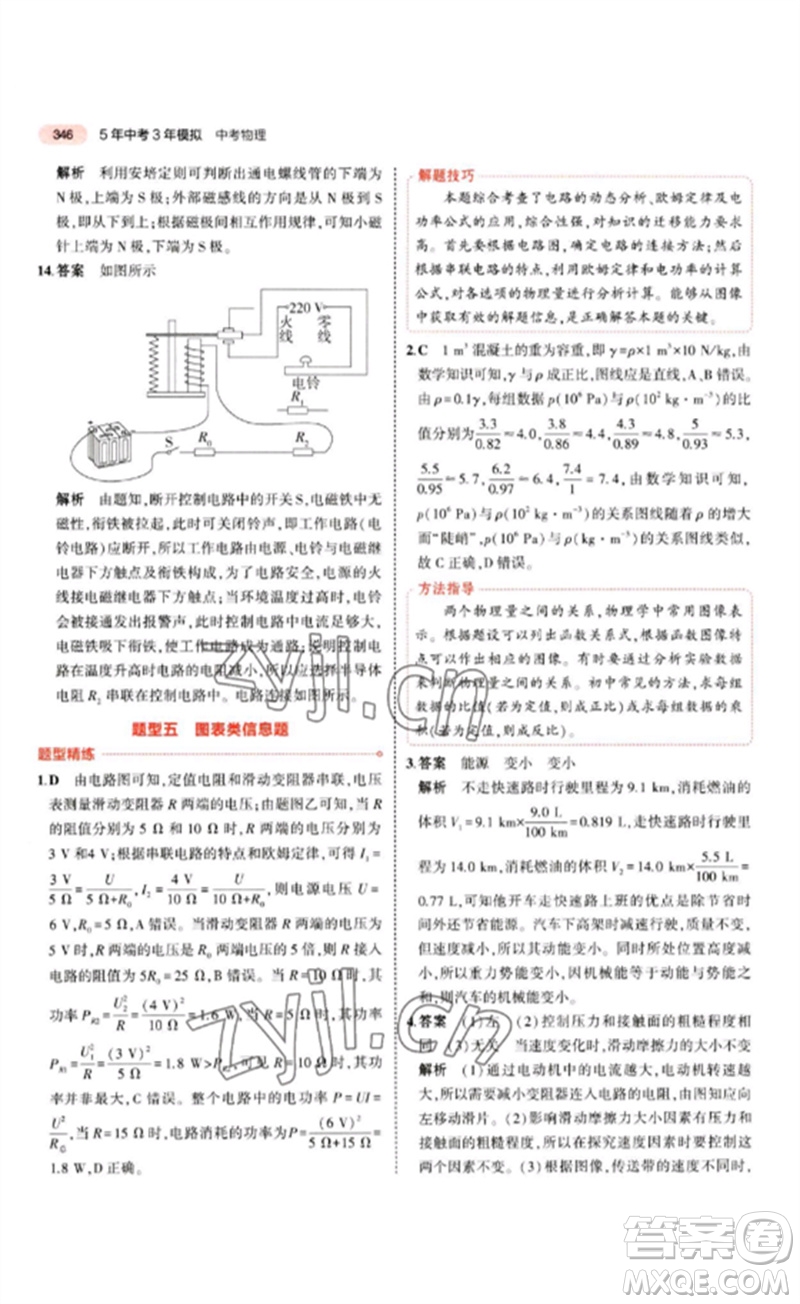 346 5年中考3年模拟 中考物理
解析 利用安培定则可判断出通电螺线管的下端为
N极,上端为S极;外部磁感线的方向是从N极到S
极,即从下到上;根据磁极间相互作用规律,可知小磁
针上端为N极,下端为S极。
14.答案 如图所示
220 V
火线 零线
电铃
R₁
S R₀ R₂
解析 由题知,断开控制电路中的开关S,电磁铁中无
磁性,衔铁被拉起,此时可关闭铃声,即工作电路(电
铃电路)断开,所以工作电路由电源、电铃与电磁继
电器下方触点及衔铁构成,为了电路安全,电源的火
线接电磁继电器下方触点;当环境温度过高时,电铃
电路接通发出报警声,此时控制电路中电流增大,
电磁铁吸下衔铁,使工作电路成为通路;说明控制电路
在温度升高时电路的电阻减小,所以应选择半导体
电阻 R₂ 串联在控制电路中。电路连接如图所示。
题型五 图表类信息题
题型精练
1.D 由电路图可知,定值电阻和滑动变阻器串联,电压
表测量滑动变阻器 R 两端的电压;由题图乙可知,当 R
的阻值为 5 Ω 和 10 Ω 时,R 两端的电压分别为
3 V和4 V;根据串联电路的特点和欧姆定律,可得 I₁=
3 V/5 Ω=U/(5 Ω+R₀),I₂=4 V/10 Ω=U/(10 Ω+R₀),则电源电压 U=
6 V,R₀=5 Ω,A 错误。当滑动变阻器 R 两端的电压为
5 V 时,R 两端的电压是 R₀ 两端电压的 5 倍,则 R 接入
电路的阻值为5R₀=5×5 Ω=25 Ω,B错误。当 R=10 Ω 时,其
功率 P_R2=U₂²/R=(4 V)²/10 Ω=1.6 W,当 R=5 Ω 时,其功率
P_R1=U₁²/R=(3 V)²/5 Ω=1.8 W>P_R2,可见 R 变大时,R 的功
率并非一直增大,C 错误。整个电路中的电功率 P=UI=
U²/R总,当 R=15 Ω 时,电路消耗的功率为 P=(6 V)²/(5 Ω+15 Ω)=
1.8 W,D 正确。
解题技巧
本题综合考查了电路的动态分析、欧姆定律及电
功率公式的应用,综合性强,对知识的迁移能力要求
高。首先要根据电路图,确定电路的连接方法;然后
根据串联电路的特点,利用欧姆定律和电功率的计算
公式,对各选项的物理量进行分析计算。能够从图像
中获取有效的解题信息,是正确解答本题的关键。
2.C 1 m³ 混凝土的重为容重,即 γ=ρ×1 m³×10 N/kg,由
数学知识可知,γ 与 ρ 成正比,图线应是直线,A、B 错误。
由 ρ=0.1γ,每组数据 p(10⁶ Pa)与 ρ(10² kg·m⁻³)的比
值分别为 3.3/0.82≈4.0、3.8/0.86≈4.4、4.5/0.90=5.0、5/0.93≈5.3、
5.5/0.95≈5.7、6.2/0.97≈6.4、7.4/1=7.4,由数学知识可知,
p(10⁶ Pa)与 ρ(10² kg·m⁻³)的关系图线随着 ρ 的增大
而“陡峭”,与 p(10⁶ Pa)与 ρ(10² kg·m⁻³)的关系图线类似,
故 C 正确,D 错误。
方法指导
两个物理量之间的关系,物理学中常用图像表
示。根据题设可以列出函数关系式,根据函数关系式
可以作出相应的图像。另外,可以通过分析实验数据
来判断物理量的关系。初中常见的方法是,求每组
数据的比值(若为定值,则成正比)或求每组数据的乘
积(若为定值,则成反比)。
3.答案 能源 变小 变小
解析 不走快速路时行驶里程为 9.1 km,消耗燃油的
体积 V₁=9.1 km×9.0 L/100 km=0.819 L,走快速路时行驶里
程为 14.0 km,消耗燃油的体积 V₂=14.0 km×5.5 L/100 km=
0.77 L,可知他开车走快速路上班的优点是除节省时
间外还能节省能源。汽车下高架时行驶的速度不变,
高度减小,所以其动能不变,重力势能变小,因机械能等于动能与势能之
和,则汽车的机械能变小。
4.答案 (1)左 (2)控制压力和接触面的粗糙程度相
同 (3)无关 当速度变化时,滑动摩擦力的大小不变
解析 (1)通过电动机中的电流越大,电动机转速越
大,所以需要减小变阻器连入电路的电阻,由图知应向
左移动滑片。(2)影响滑动摩擦力大小的因素有压力和
接触面的粗糙程度,所以在探究速度因素时要控制这
两个因素不变。(3)根据图像,传送带的速度变化时,
zyjl.cn
zyjl.cn
答案圈
MXQE.COM